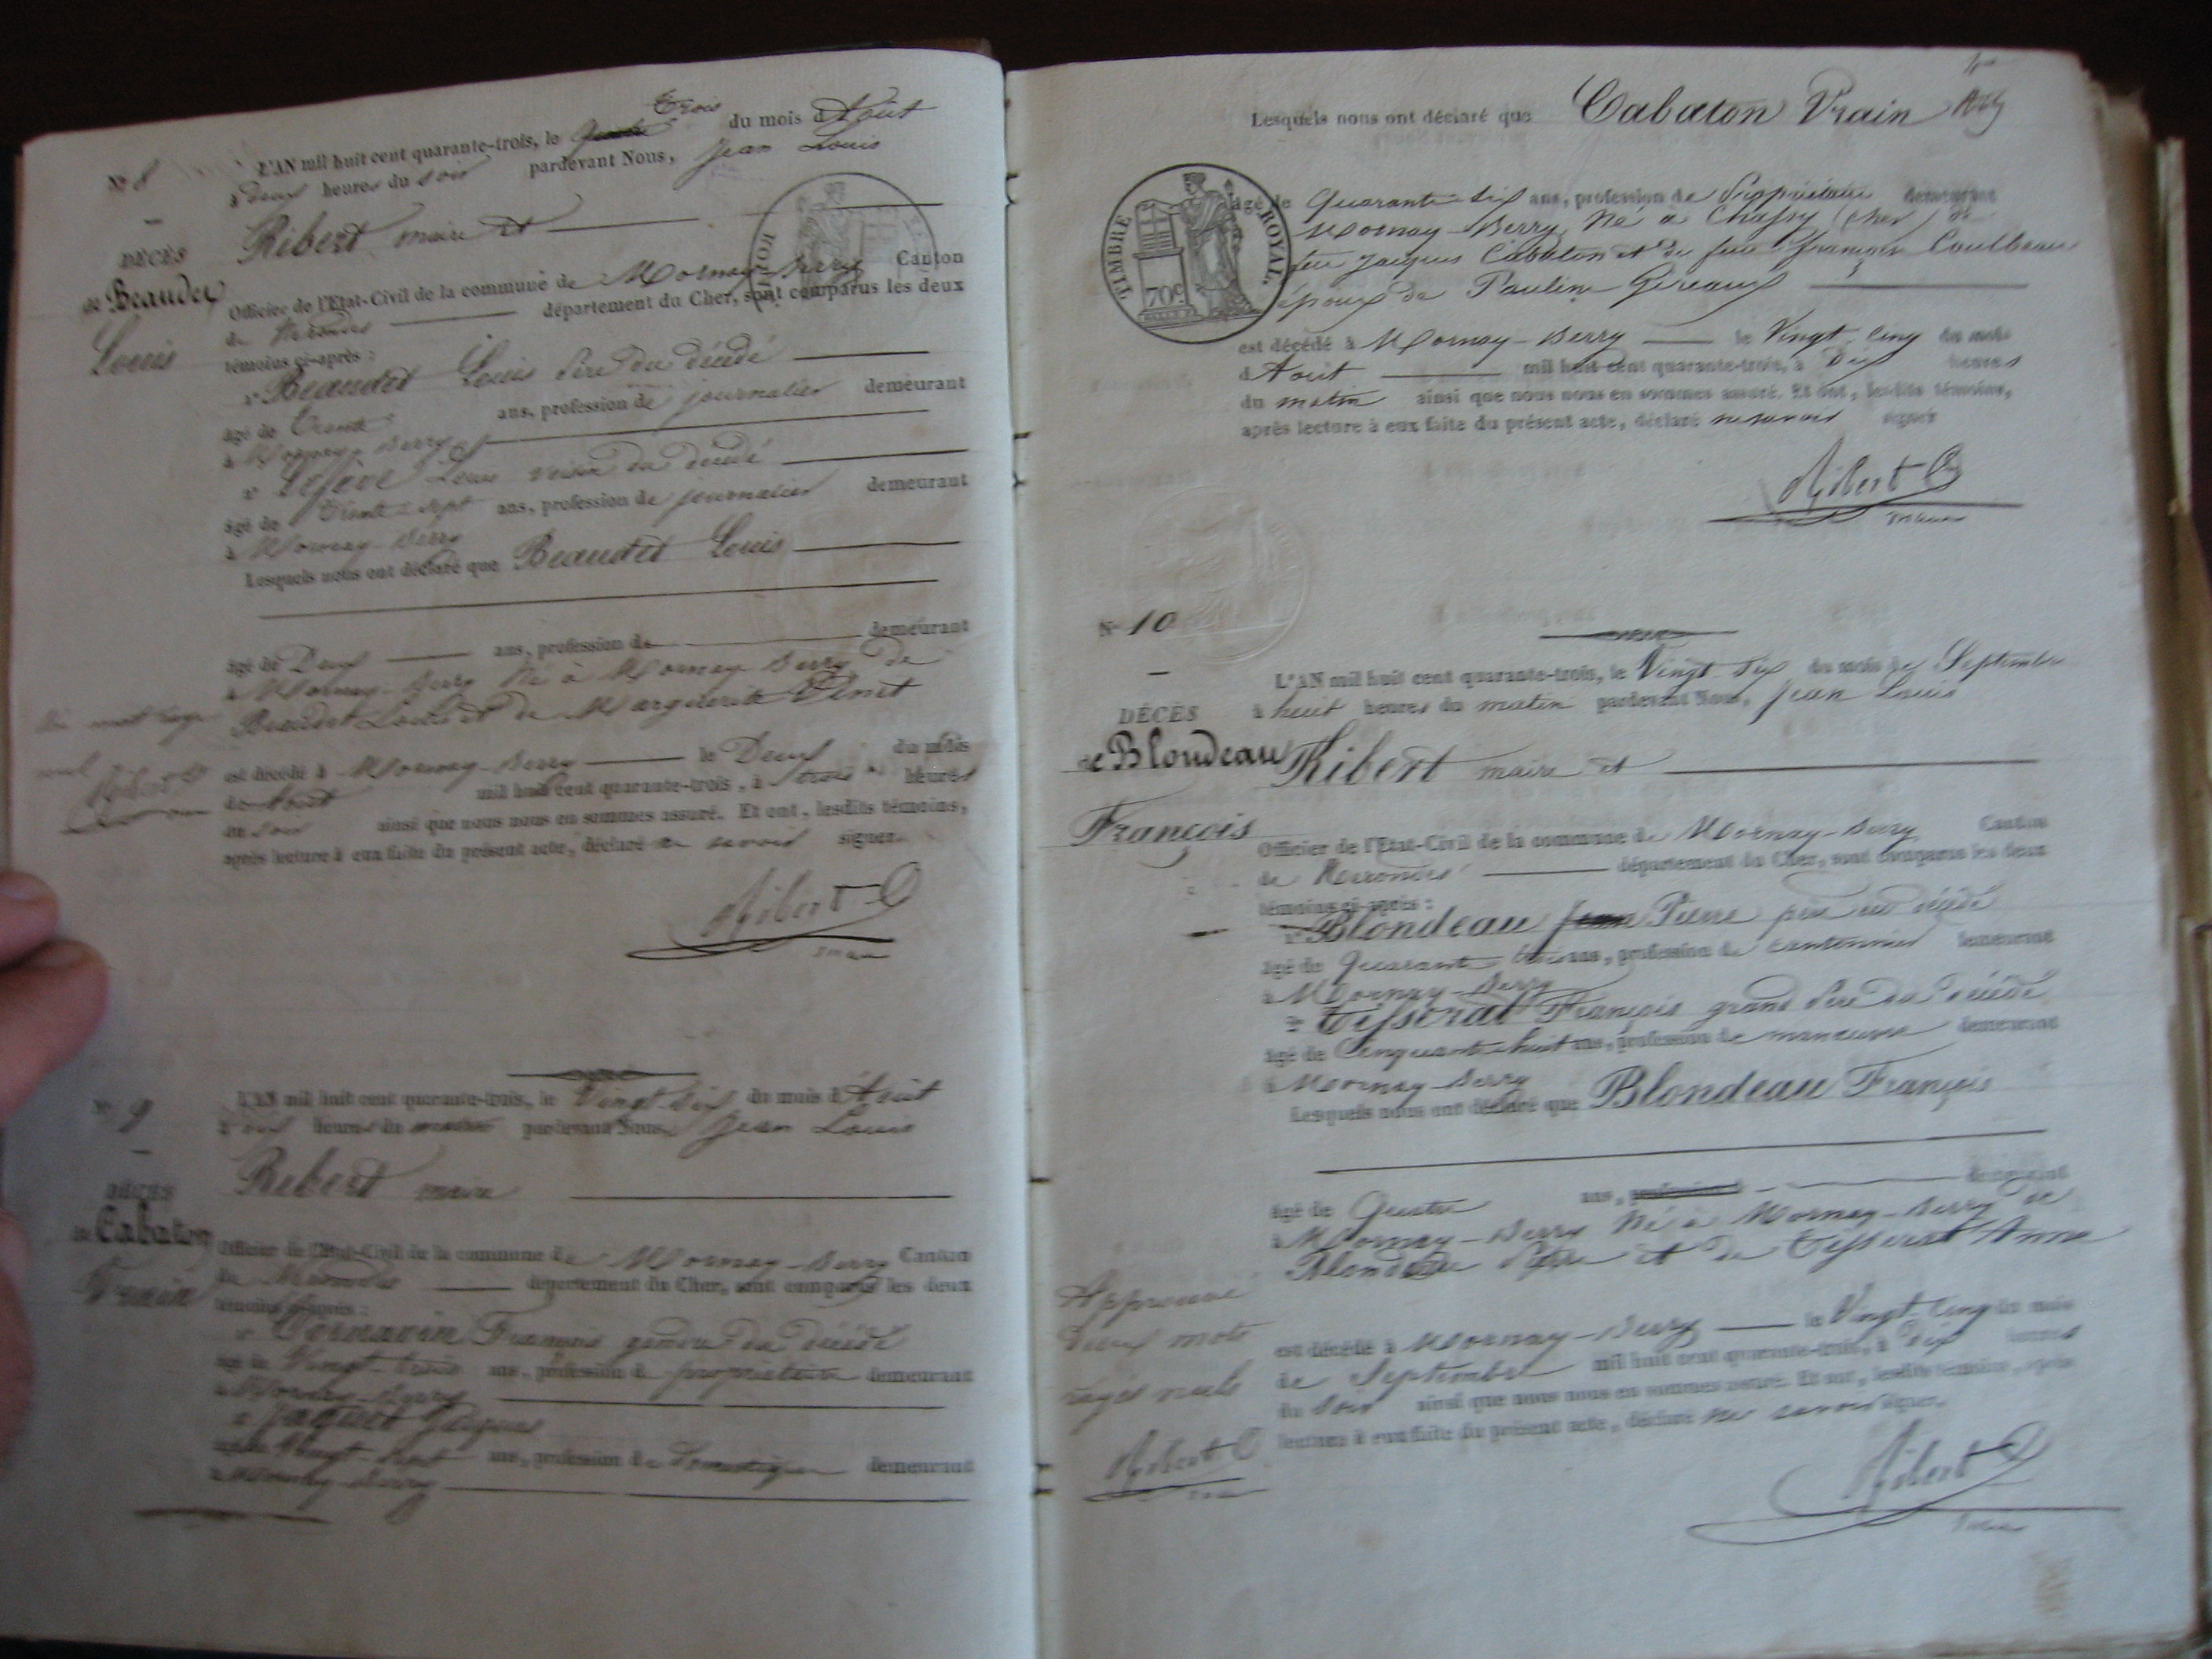 Trois
N° 8
L'AN mil huit cent quarante-trois, le Quatre du mois d'Août
à Deux heures du soir pardevant Nous, Jean Louis
Ribert maire et
DÉCÈS
de Beaudet
Louis
Officier de l'Etat-Civil de la commune de Mornay-Berry Canton
de Nerondes département du Cher, sont comparus les deux
témoins ci-après :
1° Beaudet Louis Père du décédé
âgé de Trente ans, profession de journalier demeurant
à Mornay-Berry et
2° Louis voisin du décédé
âgé de Trente-sept ans, profession de journalier demeurant
à Mornay-Berry
Lesquels nous ont déclaré que Beaudet Louis
âgé de Deux ans, profession de demeurant
à Mornay-Berry Né à Mornay-Berry de
Beaudet Louis et de Marguerite Penet
est décédé à Mornay-Berry le Deux du mois
de Aout mil huit cent quarante-trois, à trois heures
du soir ainsi que nous nous en sommes assuré. Et ont, lesdits témoins,
après lecture à eux faite du présent acte, déclaré ne savoir signer.
un mot rayé
nul
Ribert
Ribert
maire
N° 9
L'AN mil huit cent quarante-trois, le Vingt-six du mois d'Août
heures du pardevant Nous, Jean Louis
Ribert maire
DÉCÈS
de Cabaton
Vrain
Officier de l'Etat-Civil de la commune de Mornay-Berry Canton
de Nerondes département du Cher, sont comparus les deux
témoins ci-après :
1° François gendre du décédé
âgé de Vingt-trois ans, profession de propriétaire demeurant
à Mornay-Berry
2° Jaquet Jacques
âgé de Vingt-sept ans, profession de Domestique demeurant
à Mornay-Berry
Lesquels nous ont déclaré que Cabaton Vrain
TIMBRE ROYAL
70c
âgé de Quarante-six ans, profession de Propriétaire demeurant
Mornay-Berry, Né à Chassy (Cher) de
feu Jacques Cabaton et de feue Françoise Coulbeau
époux de Pauline Gireaux
est décédé à Mornay-Berry le Vingt-cinq du mois
d'Aout mil huit cent quarante-trois, à Dix heures
du matin ainsi que nous nous en sommes assuré. Et ont, lesdits témoins,
après lecture à eux faite du présent acte, déclaré ne savoir signer
Ribert
maire
N° 10
L'AN mil huit cent quarante-trois, le Vingt-Six du mois de Septembre
à huit heures du matin pardevant Nous, Jean Louis
DÉCÈS
de Blondeau
François
Ribert maire et
Officier de l'Etat-Civil de la commune de Mornay-Berry Canton
de Nerondes département du Cher, sont comparus les deux
témoins ci-après :
1° Blondeau Jean Pierre père du décédé
âgé de Quarante trois ans, profession de cantonnier demeurant
à Mornay-Berry
2° Tisserat François grand Père du décédé
âgé de Cinquante-huit ans, profession de manœuvre demeurant
à Mornay-Berry
Lesquels nous ont déclaré que Blondeau François
âgé de Quatre ans, profession de demeurant
à Mornay-Berry Né à Mornay-Berry de
Blondeau Pierre et de Tisserat Anne
est décédé à Mornay-Berry le Vingt-Cinq du mois
de Septembre mil huit cent quarante-trois, à dix heures
du Soir ainsi que nous nous en sommes assuré. Et ont, lesdits témoins, après
lecture à eux faite du présent acte, déclaré ne savoir signer.
Approuvé
deux mots
rayés nuls
Ribert
Ribert
maire